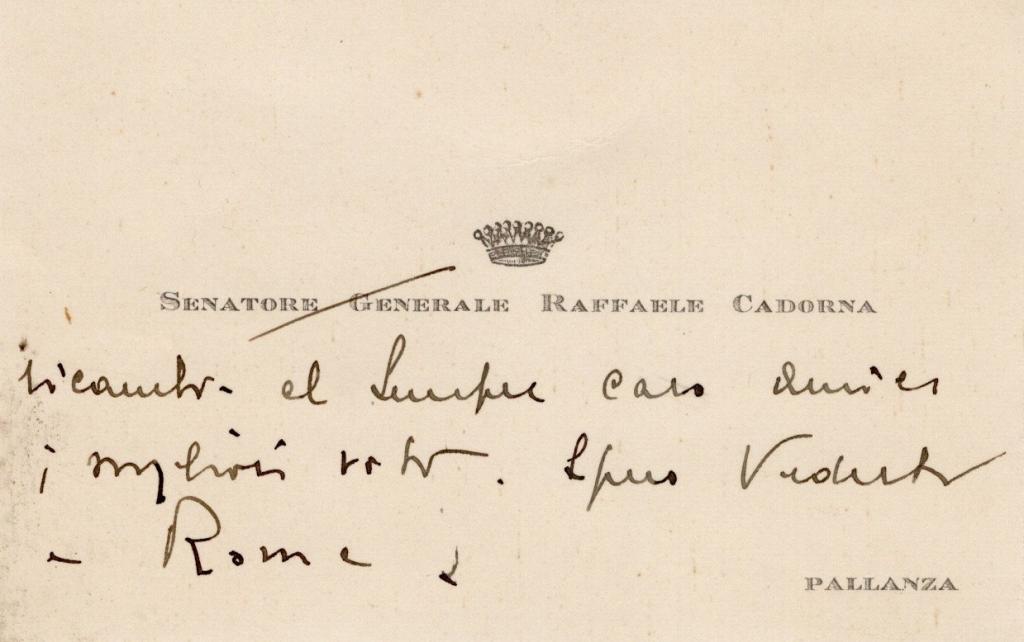 SENATORE GENERALE RAFFAELE CADORNA
ricambio al sempre caro amico
i migliori voti. Spero vederti
a Roma
PALLANZA